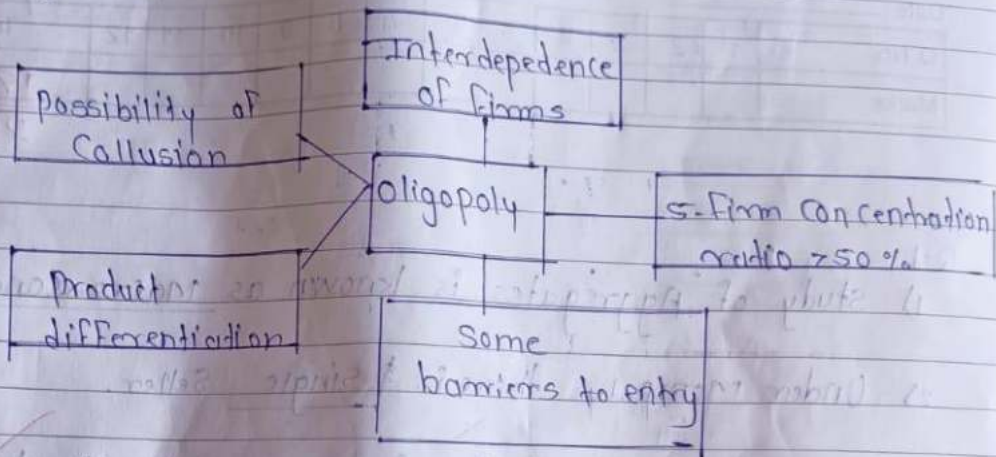 Interdepedence
of firms
Possibility of
Collusion
Oligopoly
5-firm concentration
ratio >50%
Product
differentiation
Some
barriers to entry